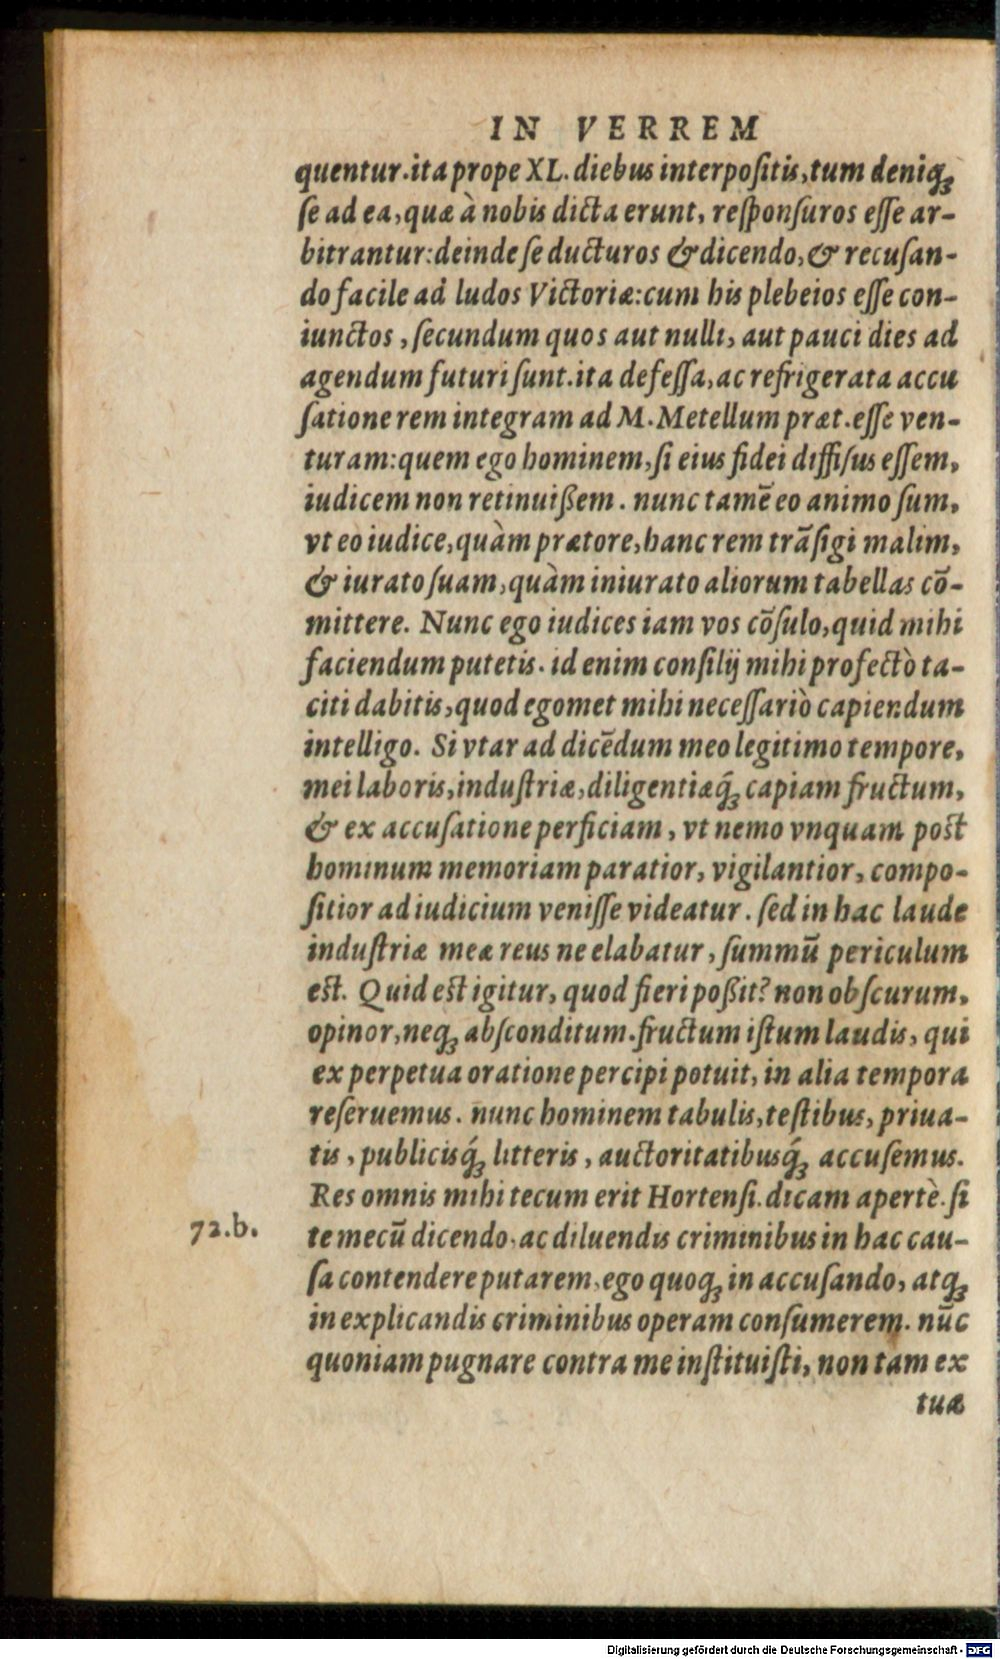 IN VERREM
quentur.ita prope XL. diebus interpoſitis,tum deniqꝫ
ſe ad ea,quæ à nobis dicta erunt, reſponſuros eſſe ar-
bitrantur:deinde ſe ducturos & dicendo,& recuſan-
do facile ad ludos Victoriæ:cum his plebeios eſſe con-
iunctos, ſecundum quos aut nulli, aut pauci dies ad
agendum futuri ſunt.ita defeſſa,ac refrigerata accu
ſatione rem integram ad M.Metellum præt.eſſe ven-
turam:quem ego hominem,ſi eius fidei diffiſus eſſem,
iudicem non retinuißem. nunc tamē eo animo ſum,
vt eo iudice,quàm prætore,hanc rem trāſigi malim,
& iurato ſuam,quàm iniurato aliorum tabellas cō-
mittere. Nunc ego iudices iam vos cōſulo,quid mihi
faciendum putetis. id enim conſilij mihi profectò ta-
citi dabitis,quod egomet mihi neceſſariò capiendum
intelligo. Si vtar ad dicēdum meo legitimo tempore,
mei laboris,induſtriæ,diligentiæq́ꝫ capiam fructum,
& ex accuſatione perficiam, vt nemo vnquam post
hominum memoriam paratior, vigilantior, compo-
ſitior ad iudicium veniſſe videatur. ſed in hac laude
induſtriæ meæ reus ne elabatur, ſummū periculum
est. Quid est igitur, quod fieri poßit? non obſcurum,
opinor,neqꝫ abſconditum.fructum iſtum laudis, qui
ex perpetua oratione percipi potuit, in alia tempora
reſeruemus. nunc hominem tabulis,teſtibus, priua-
tis, publicisq́ꝫ litteris, auctoritatibusq́ꝫ accuſemus.
Res omnis mihi tecum erit Hortenſi.dicam apertè.ſi
72.b.
te mecū dicendo,ac diluendis criminibus in hac cau-
ſa contendere putarem,ego quoqꝫ in accuſando, atqꝫ
in explicandis criminibus operam conſumerem. nūc
quoniam pugnare contra me inſtituiſti, non tam ex
tuæ
Digitalisierung gefördert durch die Deutsche Forschungsgemeinschaft - DFG